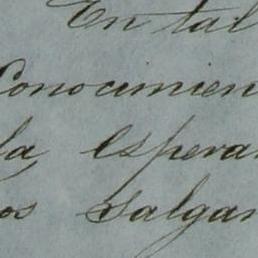 En tal
Conocimien
la, espera
os salgan